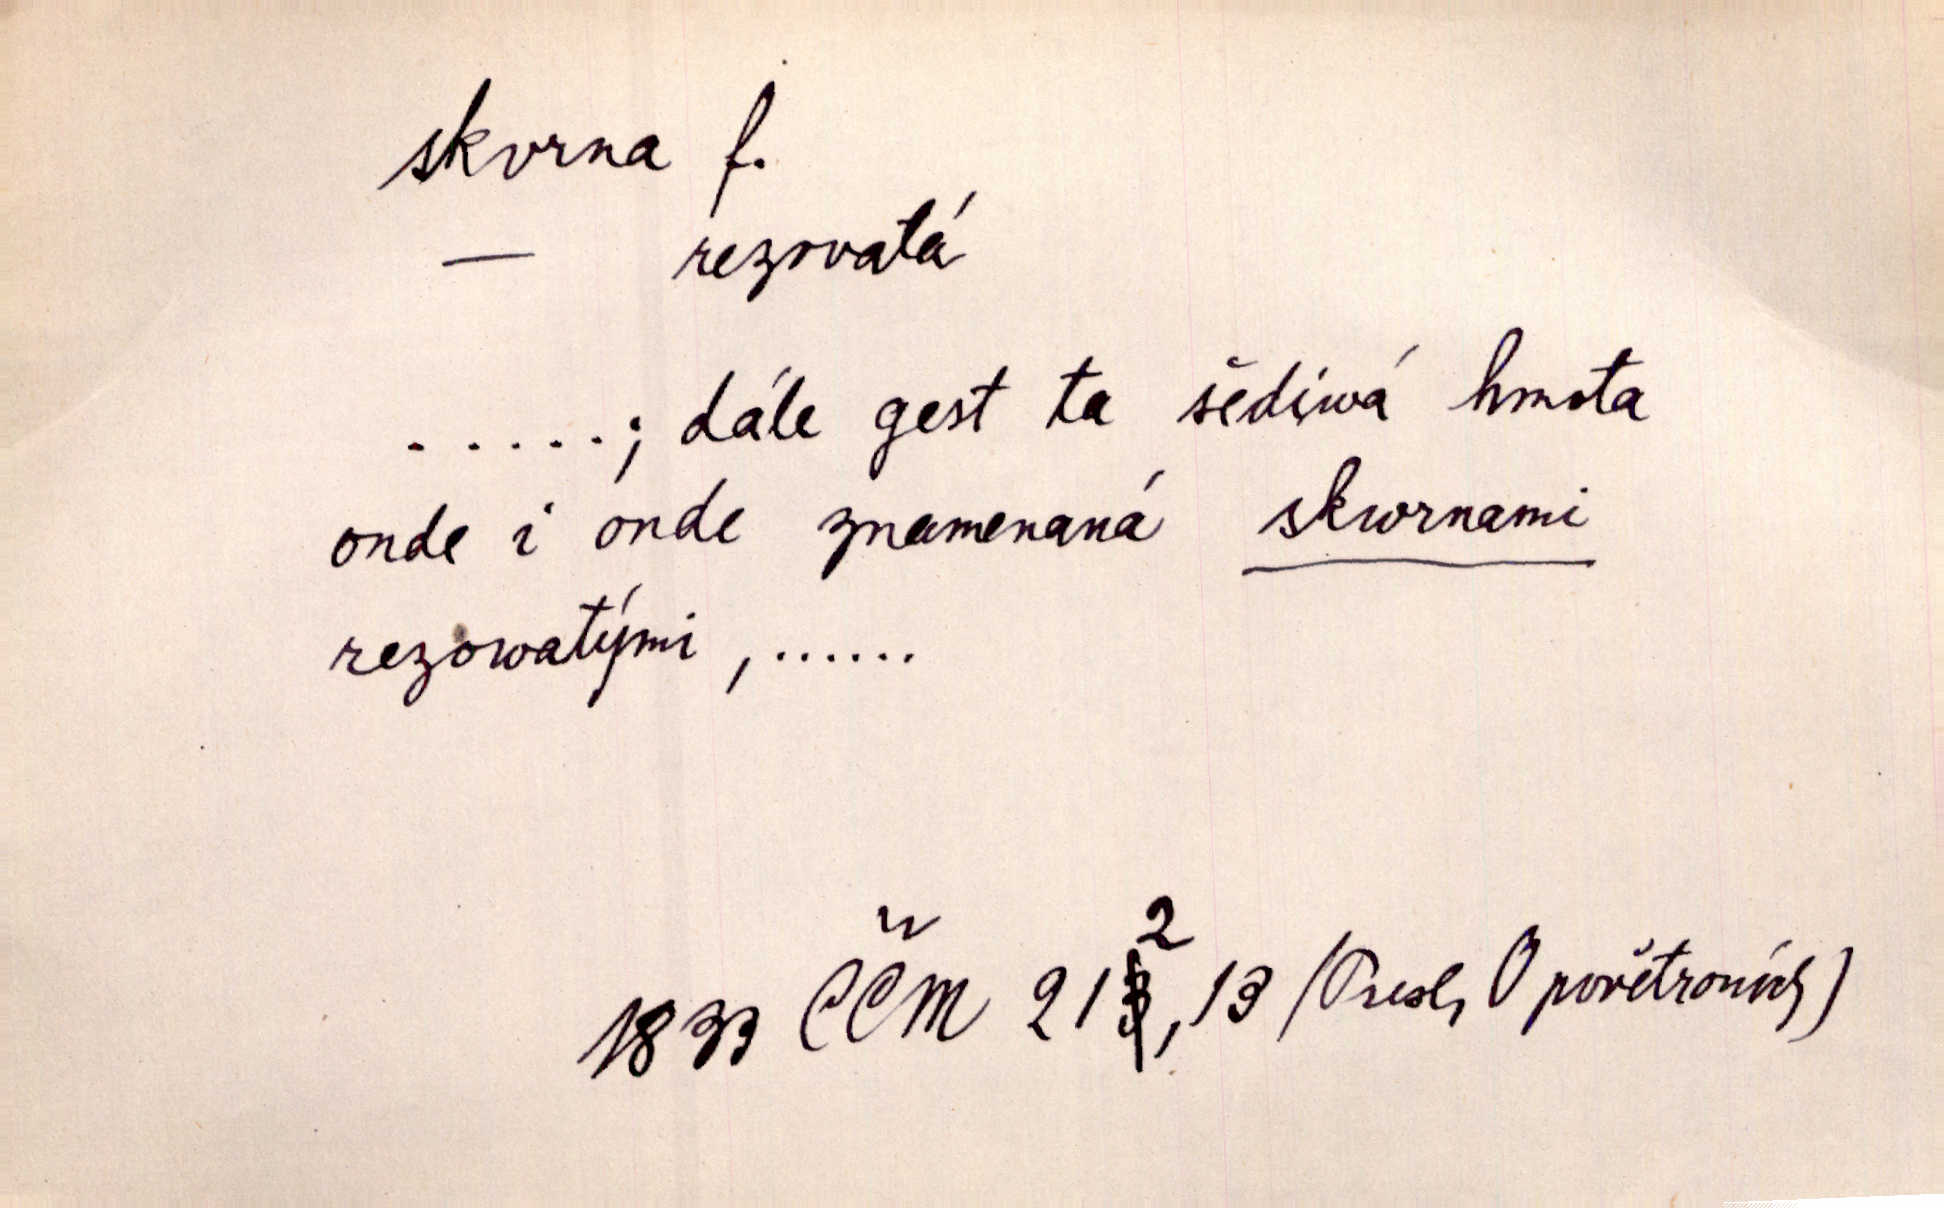 skvrna f.
— rezovatá
......; dále gest ta šediwá hmota
onde i onde znamenaná skwrnami
rezowatými, ......
1833 ČČM 212, 13 (Presl, O povětroních)